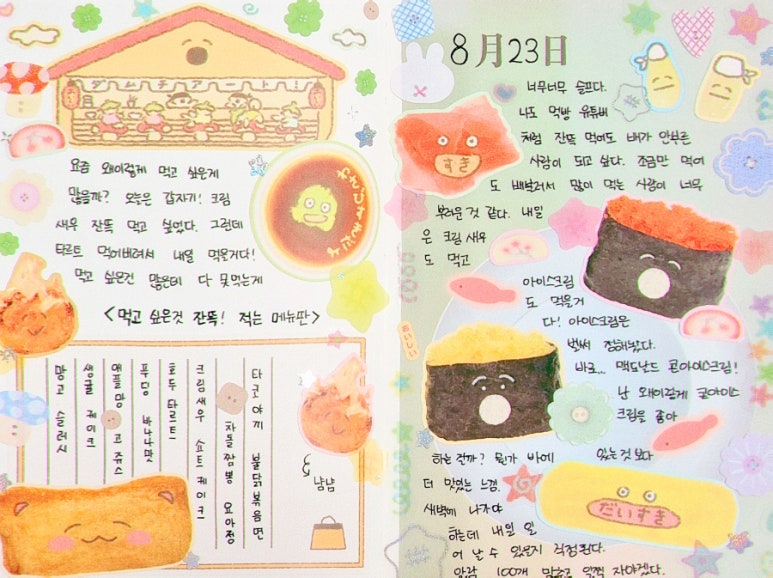 ダムチアート!
요즘 왜이렇게 먹고 싶은게
많을까? 오늘은 갑자기! 크림
새우 잔뜩 먹고 싶었다. 그런데
타르트 먹어버려서 내일 먹을거다!
먹고 싶은건 많은데 다 못먹는게
わさびすきだよ
<먹고 싶은것 잔뜩! 적는 메뉴판>
타코야끼 불닭볶음면
차돌짬뽕 요아정
크림새우 쇼트케이크
호두타르트
푸딩 바나나맛
애플망고쥬스
생귤 케이크
망고 슬러시
냠냠
8月23日
너무너무 슬프다.
나도 먹방 유튜버
처럼 잔뜩 먹어도 배가 안부른
사람이 되고 싶다. 조금만 먹어
도 배불러서 많이 먹는 사람이 너무
부러운 것 같다. 내일
은 크림새우
도 먹고
아이스크림
도 먹을거
다! 아이스크림은
벌써 정해놨다.
바로... 맥도날드 콘아이스크림!
난 왜이렇게 콘아이스
크림을 좋아
하는걸까? 뭔가 바에 있는것 보다
더 맛있는 느낌.
새벽에 나가야
하는데 내일 일
어날 수 있을지 걱정된다.
알람 100개 맞추고 일찍 자야겠다.
すき
おいしい
だいすき